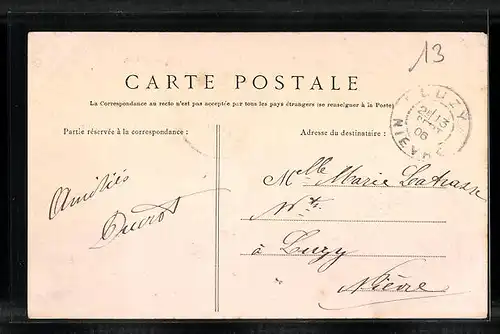 13
CARTE POSTALE
La Correspondance au recto n'est pas acceptée par tous les pays étrangers (se renseigner à la Poste)
Partie réservée à la correspondance :
Adresse du destinataire :
LUZY
13
06
NIÈVRE
Amitiés
Mlle Marie
à Luzy
Nièvre